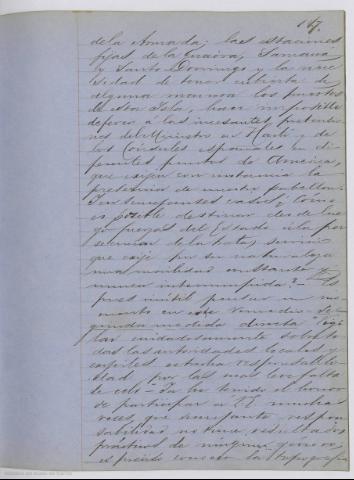 107.
de la Armada; las estaciones
fijas de la Guaira, Samaná
y Santo Domingo y la nece
sidad de tener cubierta de
alguna manera los puertos
de esta Isla, hace imposible
deferir á las incesantes pretensio
nes del Ministro en Haiti y de
los Cónsules españoles en di
ferentes puntos de America,
que exijen con instancia la
presencia de nuestro pabellon.
En semejantes casos ¿como
es posible destinar desde lue
go fuerzas del Estado á la per
secucion de la trata, servicio
que exije por su naturaleza
una movilidad constante y
nunca interrumpida?— Es
pues inútil pensar un mo
mento en este remedio. Se
gunda medida directa "Vigi
lar cuidadosamente sobre to
das las autoridades locales y
exijirles estrecha responsabili
dad por las mas leve falta
de celo— Ya he tenido el honor
de participar á VE muchas
veces, que semejante respon
sabilidad no tiene resultados
prácticos de ningun género,
es preciso conocer la topografia